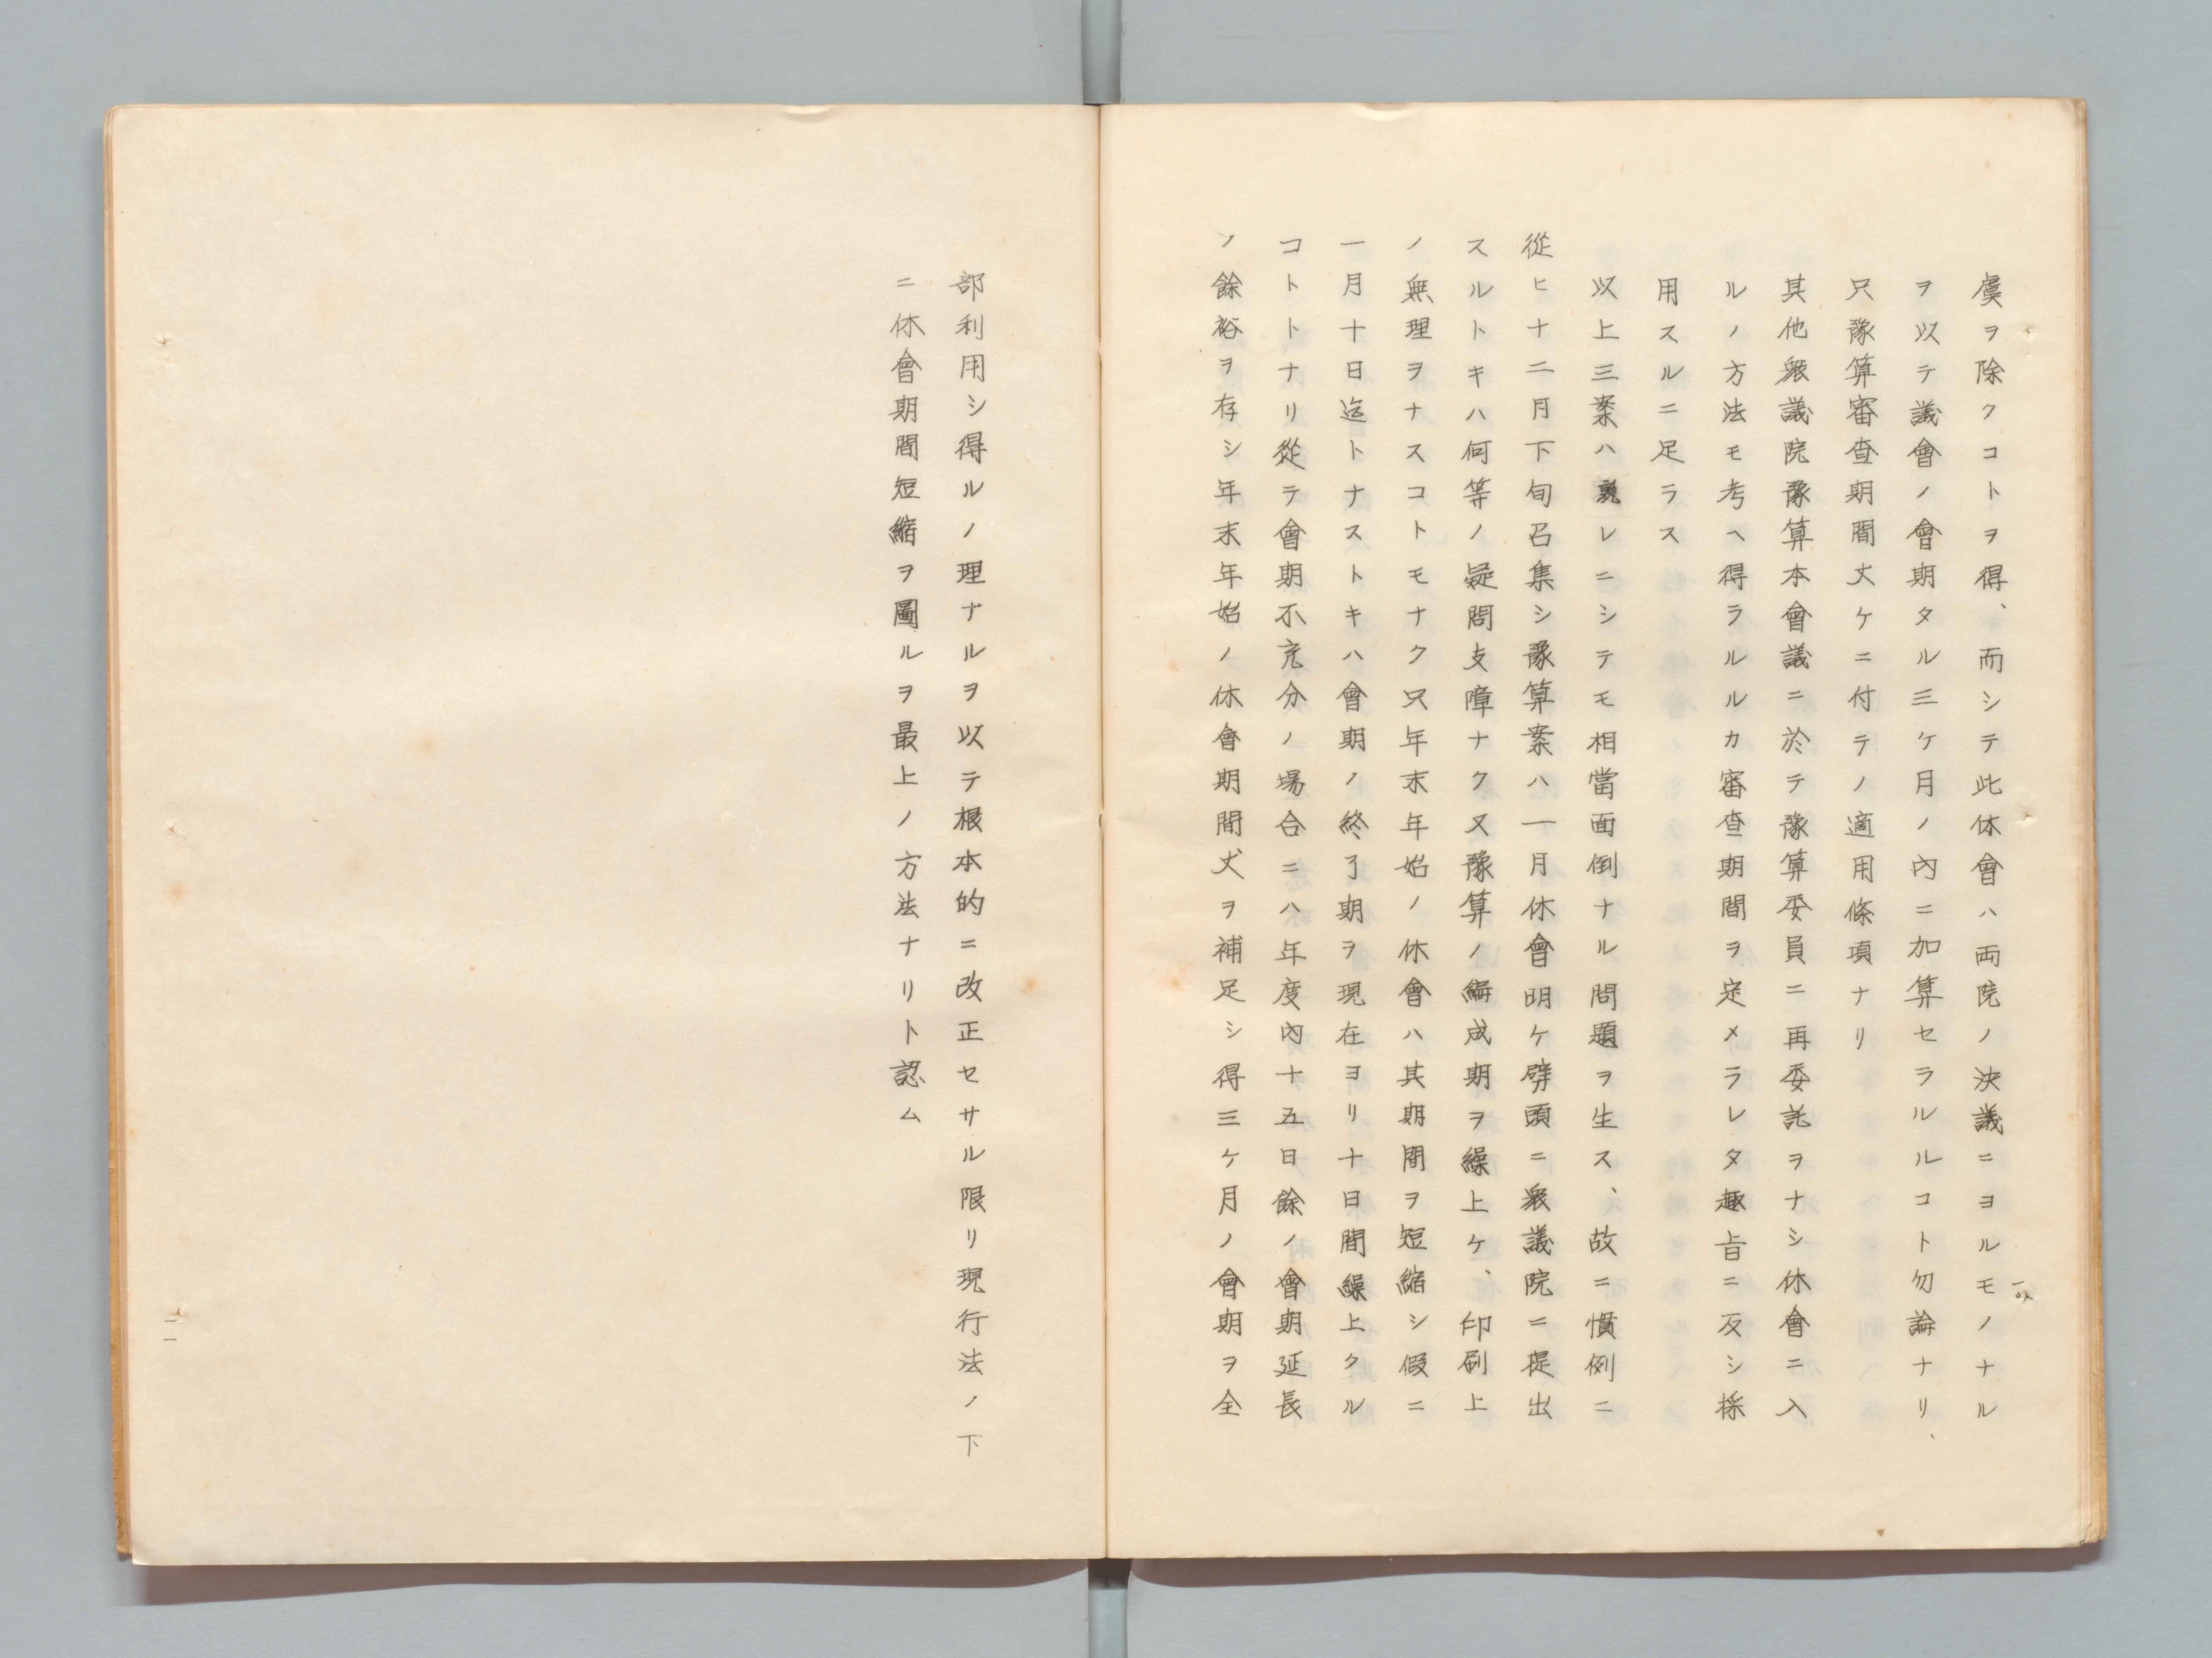 虞ヲ除クコトヲ得、而シテ此休會ハ両院ノ決議ニヨルモノナル
ヲ以テ議會ノ會期タル三ケ月ノ內ニ加算セラルルコト勿論ナリ、
只豫算審査期間丈ケニ付テノ適用條項ナリ
其他衆議院豫算本會議ニ於テ豫算委員ニ再委託ヲナシ休會ニ入
ルノ方法モ考ヘ得ラルルカ審査期間ヲ定メラレタ趣旨ニ反シ採
用スルニ足ラス
以上三案ハ孰レニシテモ相當面倒ナル問題ヲ生ス、故ニ慣例ニ
從ヒ十二月下旬召集シ豫算案ハ一月休會明ケ劈頭ニ衆議院ニ提出
スルトキハ何等ノ疑問支障ナク又豫算ノ編成期ヲ繰上ケ、印刷上
ノ無理ヲナスコトモナク只年末年始ノ休會ハ其期間ヲ短縮シ假ニ
一月十日迄トナストキハ會期ノ終了期ヲ現在ヨリ十日間繰上クル
コトトナリ從テ會期不充分ノ場合ニハ年度內十五日餘ノ會期延長
ノ餘裕ヲ存シ年末年始ノ休會期間丈ヲ補足シ得三ケ月ノ會期ヲ全
部利用シ得ルノ理ナルヲ以テ根本的ニ改正セサル限リ現行法ノ下
ニ休會期間短縮ヲ圖ルヲ最上ノ方法ナリト認ム
一一